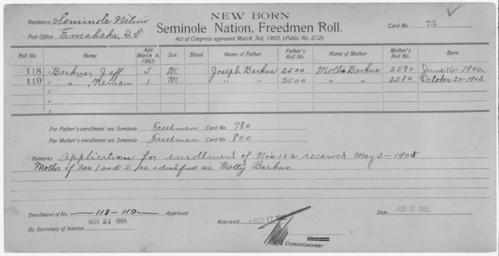 NEW BORN
Residence Seminole Nation
Seminole Nation, Freedmen Roll.
Card No. 73
Post Office Emahaka, I.T.
Act of Congress approved March 3rd, 1905, (Public No. 212).
Roll No. Name Age March 4, 1905. Sex. Blood. Name of Father. Father's Roll No. Name of Mother Mother's Roll No. Born.
118 Barkus, Jeff 5 M Joseph Barkus 2500 Mollie Barkus 2580 June 16-1900.
119 " 1 M " " 2500 " " 2580 October 20-1903.
For Father's enrollment see Seminole Freedman Card No. 780
For Mother's enrollment see Seminole Freedman Card No. 800
Remarks Application for enrollment of Nos 1 & 2 received May 5-1905
Mother of Nos 1 and 2 has identified as Molly Barkus
Enrollment of No. 118-119 Approved
NOV 24 1905
By Secretary of Interior
Approved OCT 17
Commissioner
Date JUN 1905